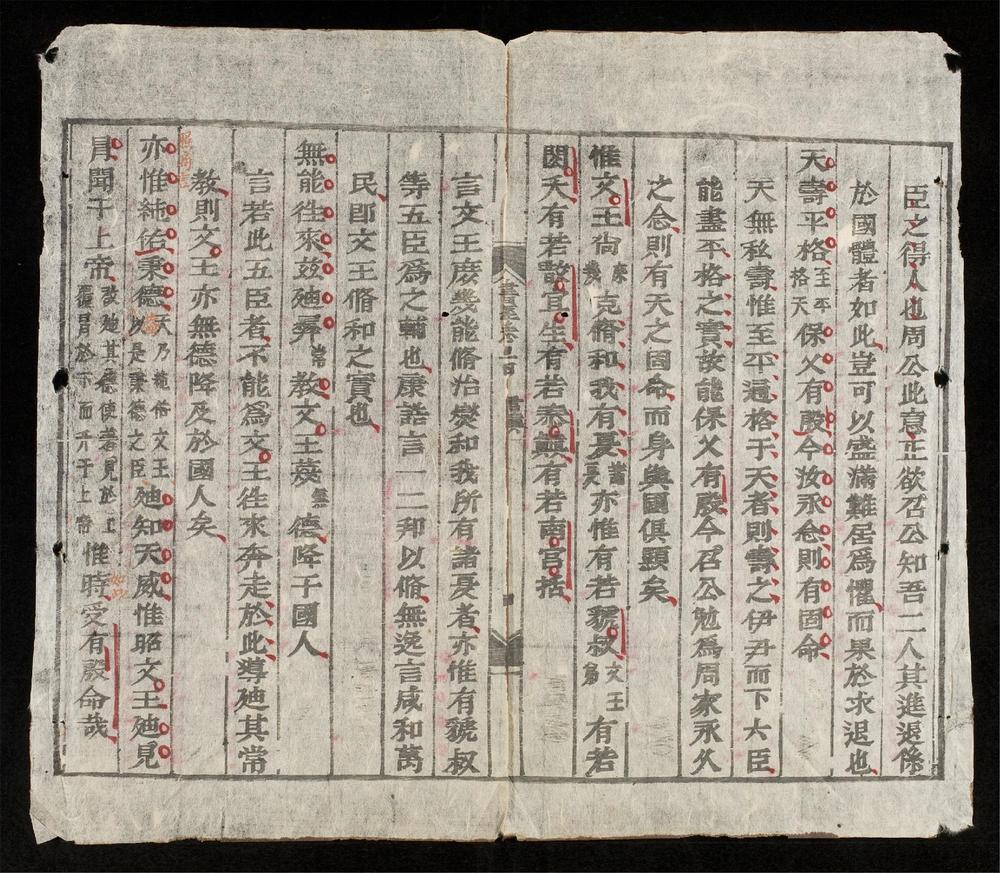 臣之得人也周公此意正欲召公知吾二人其進退係
於國體者如此豈可以盛滿難居爲懼而果於求退也
天壽平格至平格天保乂有殷今汝永念則有固命
天無私壽惟至平通格于天者則壽之伊尹而下六臣
能盡平格之實故能保乂有殷今召公勉爲周家永久
之念則有天之固命而身與國俱顯矣
惟文王尚庶幾克脩和我有夏諸夏亦惟有若虢叔文王弟有若
閎夭有若散宜生有若泰顚有若南宮括
書經卷
言文王庶幾能脩治爕和我所有諸夏者亦惟有虢叔
等五臣爲之輔也康誥言一二邦以脩無逸言咸和萬
民卽文王脩和之實也
無能徃來玆廸彛常敎文王蔑無德降于國人
言若此五臣者不能爲文王徃來奔走於此導廸其常
敎則文王亦無德降及於國人矣
亦惟純佑秉德天乃純佑文王以是秉德之臣廸知天威惟昭文王廸見
冐聞于上帝啟廸其德使著見於上覆冐於下而升于上帝惟時受有殷命哉